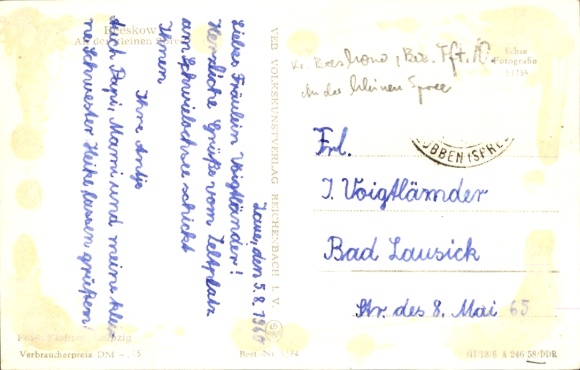 Beeskow
An der kleinen Spree
Jaue, den 5.8.1960
Liebes Fräulein Voigtländer!
Herzliche Grüße vom Zeltplatz
am Schwielochsee schickt
Ihnen
Ihre Antje
Auch Papi, Mami und meine klei-
ne Schwester Heike lassen grüßen!
Verbraucherpreis DM
Best.-Nr.
VEB VOLKSKUNSTVERLAG REICHENBACH I. V.
Kr. Beeskow, Bez. Fft./O.
An der kleinen Spree
Echte
Fotografie
LÜBBEN (SPREE
Frl.
I. Voigtländer
Bad Lausick
Str. des 8. Mai 65
A 246/58/DDR